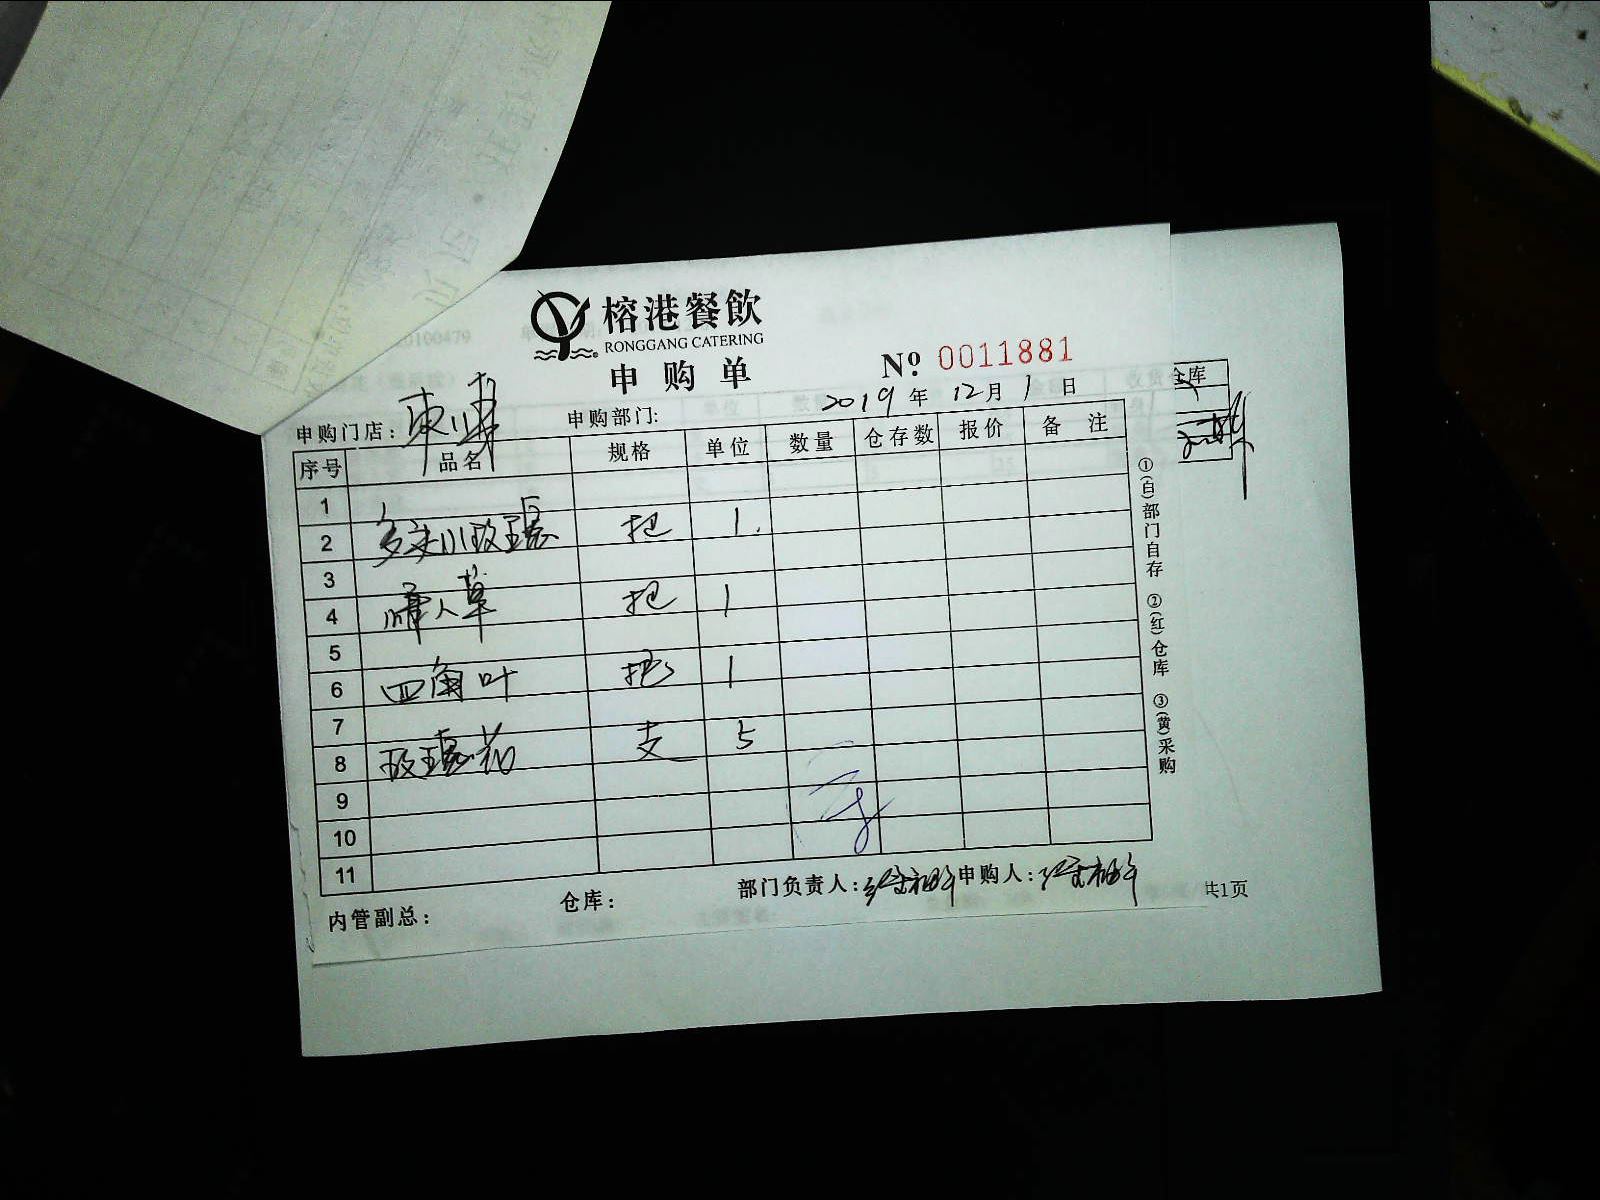 榕港餐飲
RONGGANG CATERING
申购单
№ 0011881
2019年12月1日
申购门店: 申购部门:
仓库
序号 品名 规格 单位 数量 仓存数 报价 备注
1
2 多头小玫瑰 把 1.
3
4 情人草 把 1
5
6 四角叶 把 1
7
8 玫瑰花 支 5
9
10
11
①(白)部门自存 ②(红)仓库 ③(黄)采购
内管副总: 仓库: 部门负责人: 申购人:
共1页